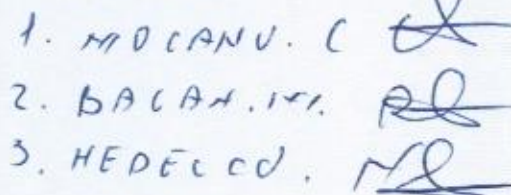 1. MOCANU. C
2. BACAN. M.
3. NEDELCU.